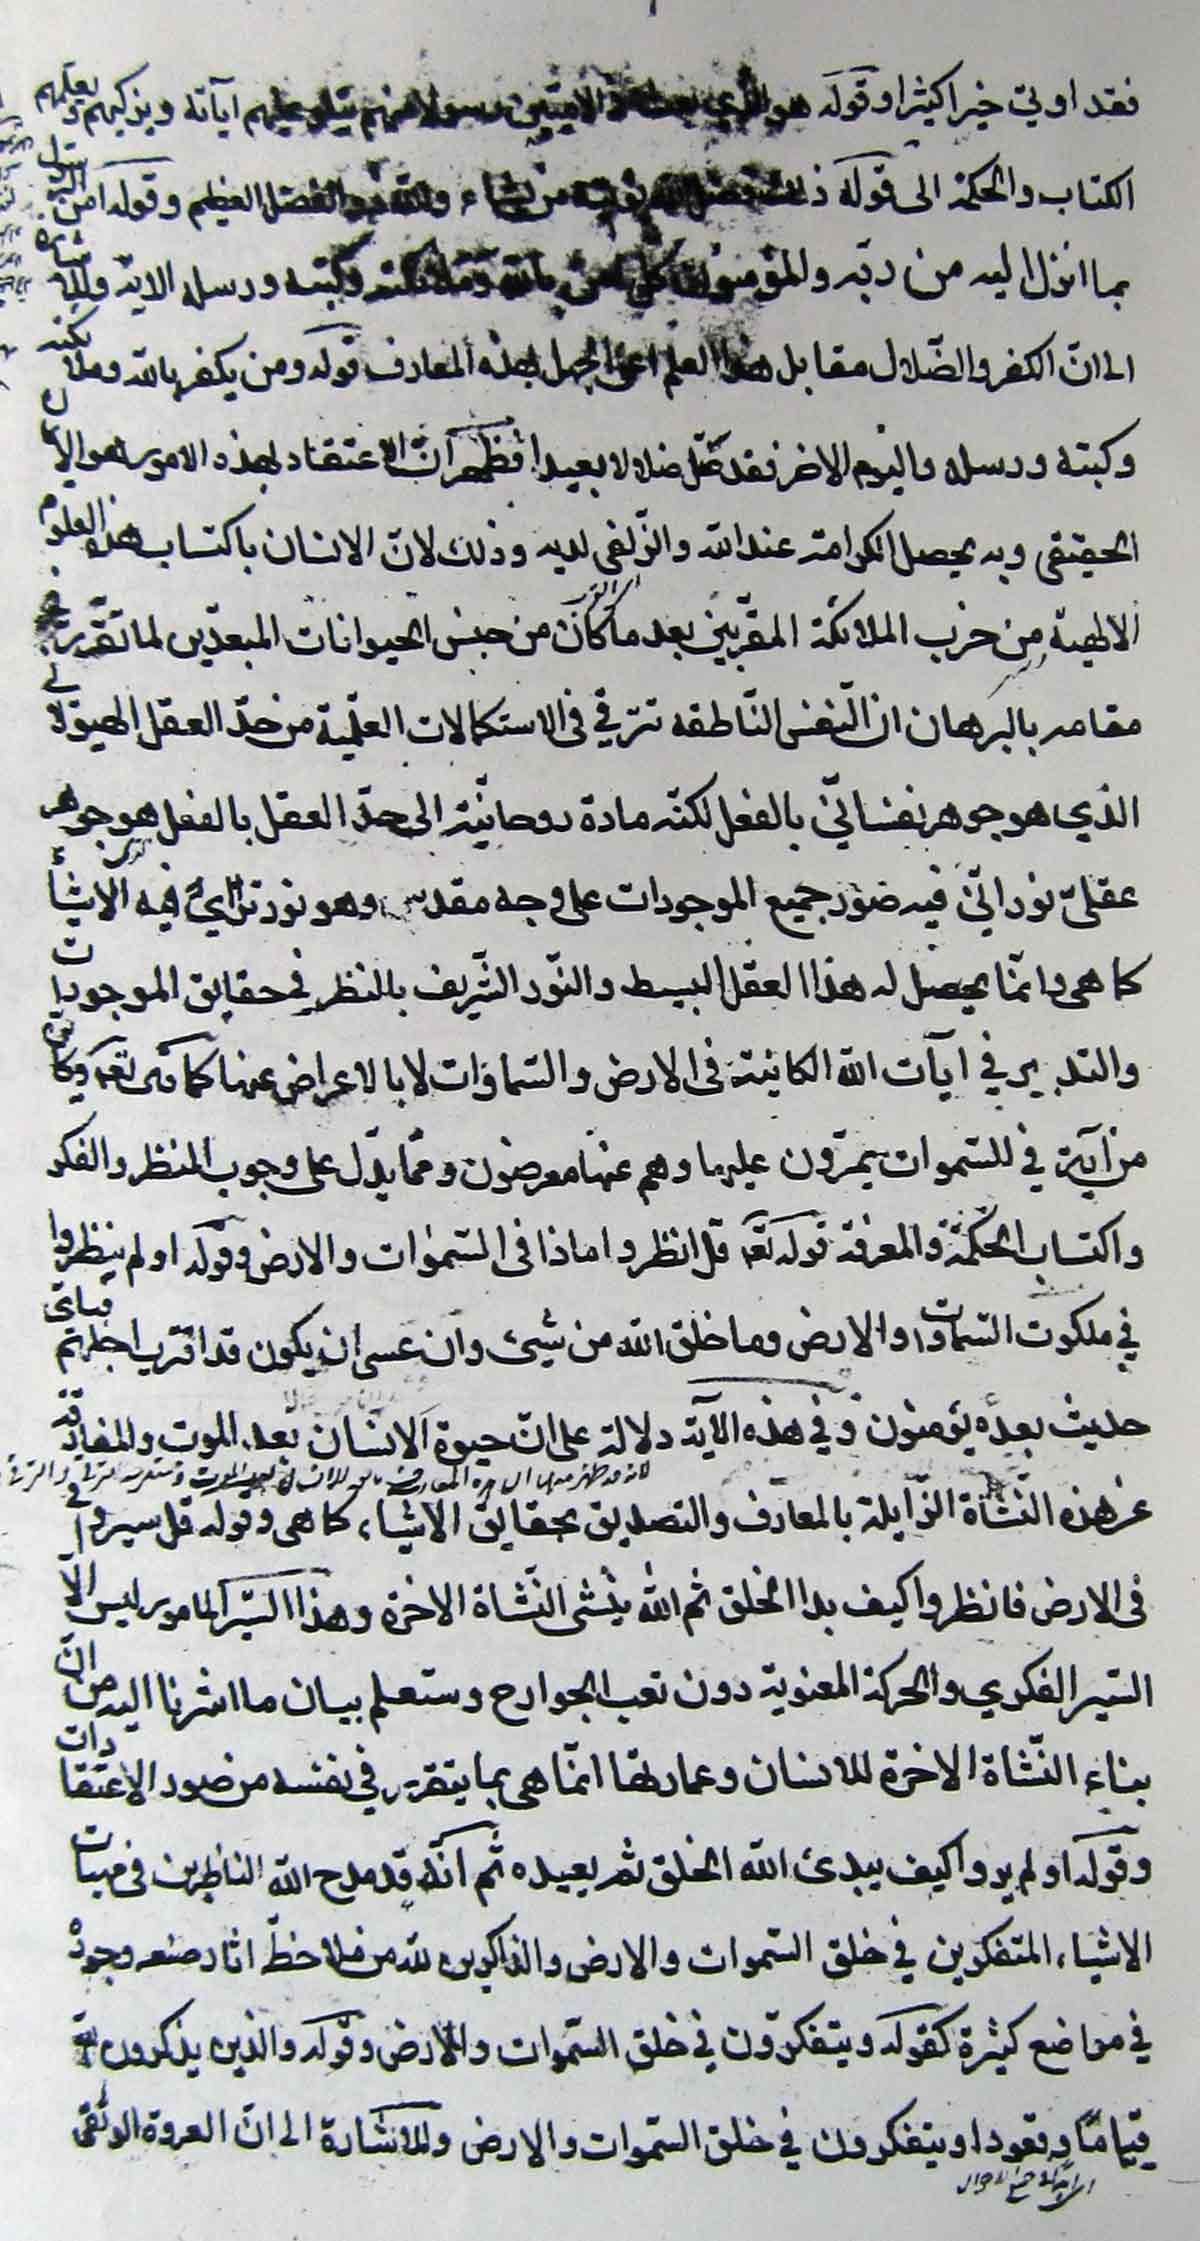 فقد اوتي خيرا كثيرا وقوله هو الذي بعث في الاميين رسولا منهم يتلو عليهم اياته ويزكيهم ويعلمهم
الكتاب والحكمة الى قوله ذلك فضل الله يؤتيه من يشاء والله ذو الفضل العظيم وقوله امن الرسول
بما انزل اليه من ربه والمؤمنون كل امن بالله وملائكته وكتبه ورسله الاية وللاشارة
الى ان الكفر والضلال مقابل هذا العلم اعنى الجهل بهذه المعارف قوله ومن يكفر بالله وملائكته
وكتبه ورسله واليوم الاخر فقد ضل ضلالا بعيدا فظهر ان الاعتقاد بهذه الامور هو الايمان
الحقيقى وبه يحصل الكرامة عند الله والزلفى لديه وذلك لان الانسان باكتساب هذه العلوم
الالهية من حزب الملائكة المقربين بعد ما كان من جنس الحيوانات المبعدين لما تقرر فى
مقامه بالبرهان ان النفس الناطقه تترقي فى الاستكمالات العلمية من حد العقل الهيولانى
الذي هو جوهر نفساني بالفعل لكنه مادة روحانية الى حد العقل بالفعل هو جوهر
عقلي نوراني فيه صور جميع الموجودات على وجه مقدس وهو نور تترائ فيه الاشياء
كما هى وانما يحصل له هذا العقل البسيط والنور الشريف بالنظر في حقايق الموجودات
والتدبير في ايات الله الكائنة فى الارض والسماوات لا بالاعراض عنها كما قال تعالى وكاين
من آية في السموات يمرون عليها وهم عنها معرضون ومما يدل على وجوب النظر والفكر
واكتساب الحكمة والمعرفة قوله تعه قل انظروا ماذا فى السموات والارض وقوله اولم ينظروا
في ملكوت السماوات والارض وما خلق الله من شيئ وان عسى ان يكون قد اقترب اجلهم فباى
حديث بعده يؤمنون وفي هذه الآية دلالة على ان حيوة الانسان بعد الموت والمفارقة
عن هذه النشاة الزايلة بالمعارف والتصديق بحقايق الاشياء كما هى وقوله قل سيروا
فى الارض فانظروا كيف بدا الخلق ثم الله ينشئ النشاة الاخرة وهذا السير المامور ليس الا
السير الفكري والحركة المعنوية دون تعب الجوارح وستعلم بيان ما اشرنا اليه من ان
بناء النشاة الاخرة للانسان وعمارتها انما هى بما يتقرر في نفسه من صور الاعتقادات
وقوله اولم يروا كيف يبدئ الله الخلق ثم يعيده ثم انه قد مدح الله الناظرين فى مهيات
الاشياء المتفكرين في خلق السموات والارض والذاكرين لله من ملاحظة اثار صنعه وجوده
في مواضع كثيرة كقوله ويتفكرون في خلق السموات والارض وقوله والذين يذكرون الله
قياما وقعودا ويتفكرون في خلق السموات والارض وللاشارة الى ان العروة الوثقى